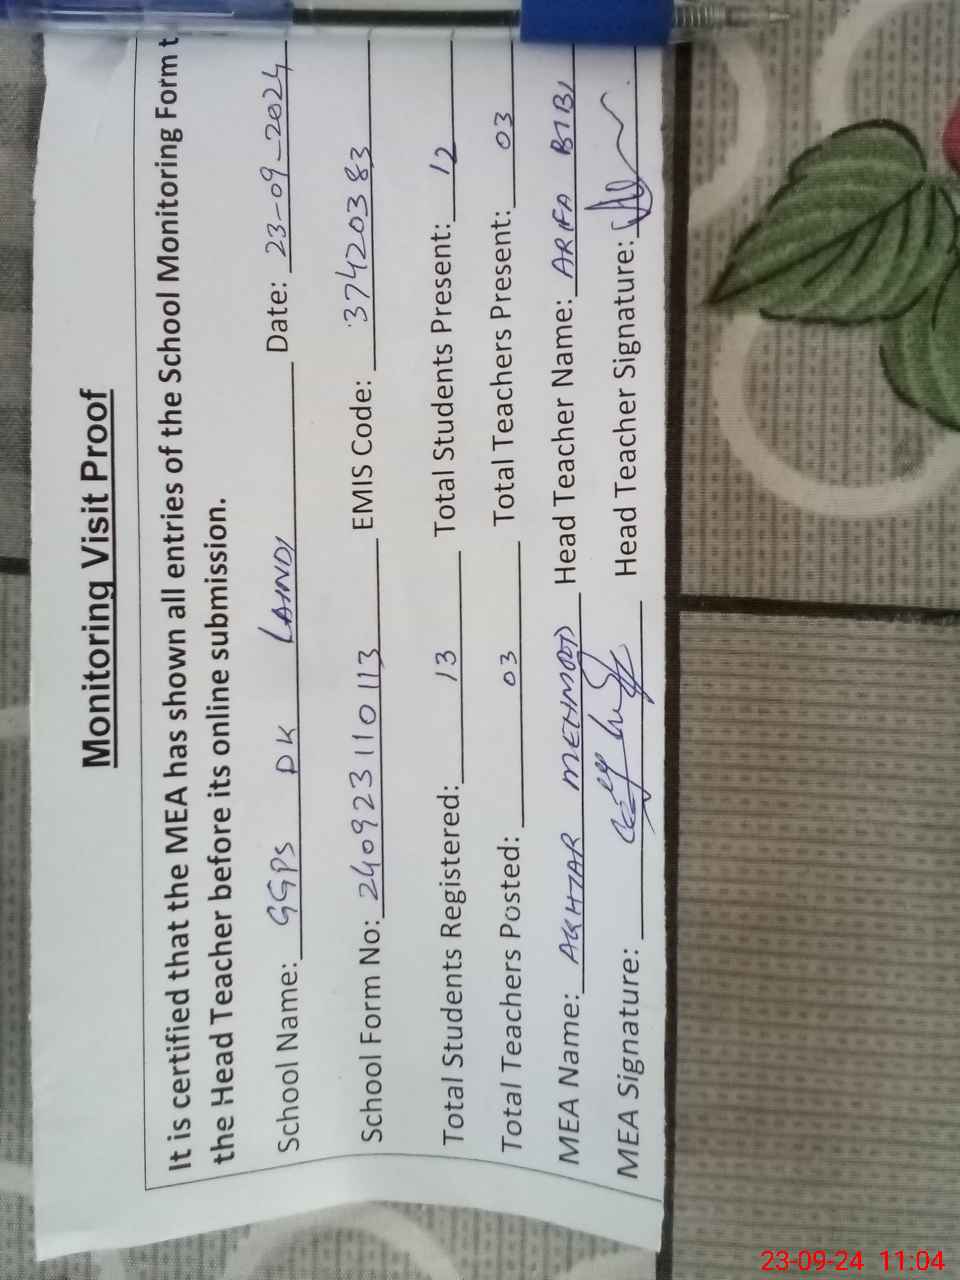 Monitoring Visit Proof
It is certified that the MEA has shown all entries of the School Monitoring Form t
the Head Teacher before its online submission.
School Name: GGPS DK LAINDI Date: 23-09-2024
School Form No: 240923110113 EMIS Code: 37420383
Total Students Registered: 13 Total Students Present: 12
Total Teachers Posted: 03 Total Teachers Present: 03
MEA Name: AKHTAR MEHMOOD Head Teacher Name: ARIFA BIBI
MEA Signature: Head Teacher Signature:
23-09-24 11:04